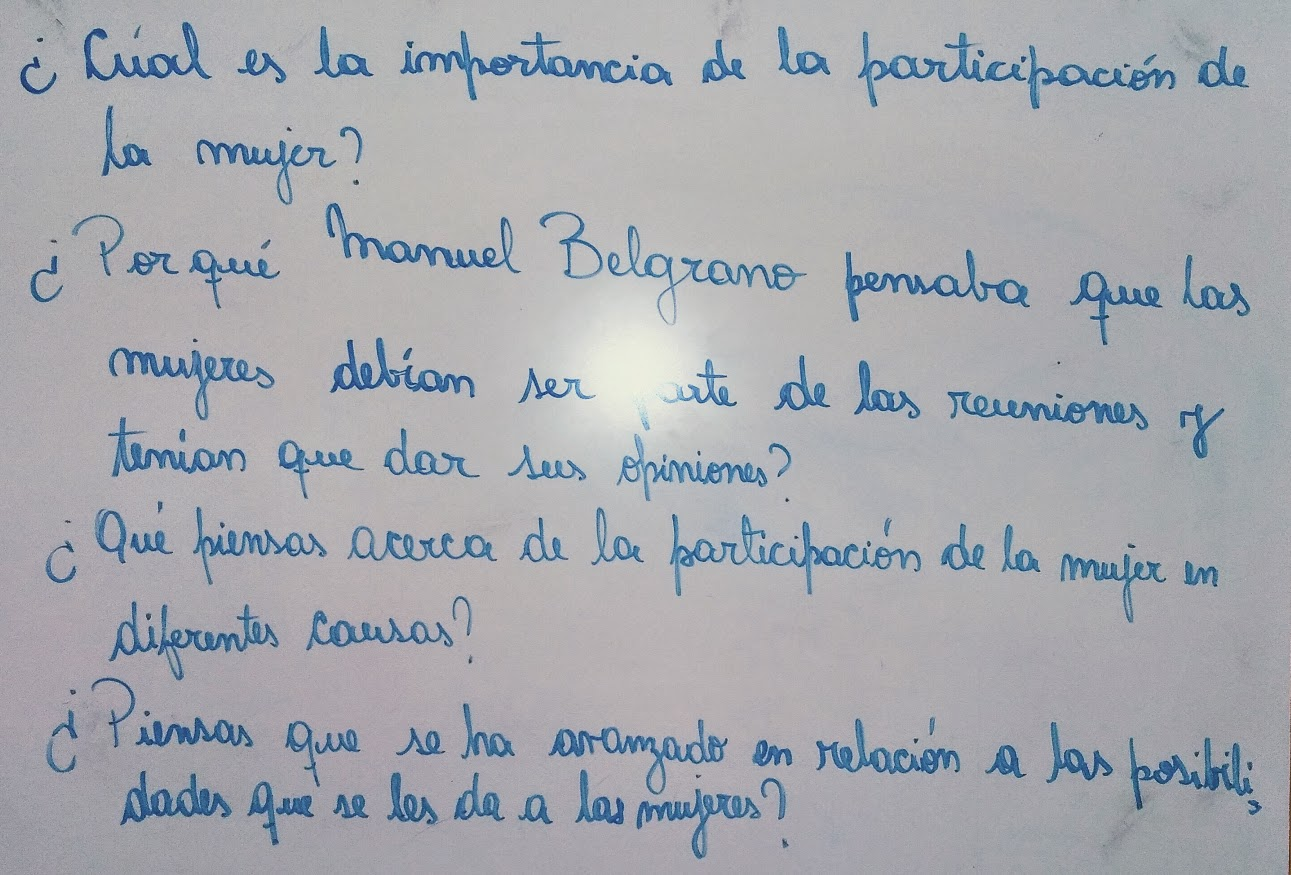 ¿Cúal es la importancia de la participación de
la mujer?
¿Porqué Manuel Belgrano pensaba que las
mujeres debían ser parte de las reuniones y
tenian que dar sus opiniones?
¿Qué piensas acerca de la participación de la mujer en
diferentes causas?
¿Piensas que se ha avanzado en relación a las posibili
dades qué se les da a las mujeres?